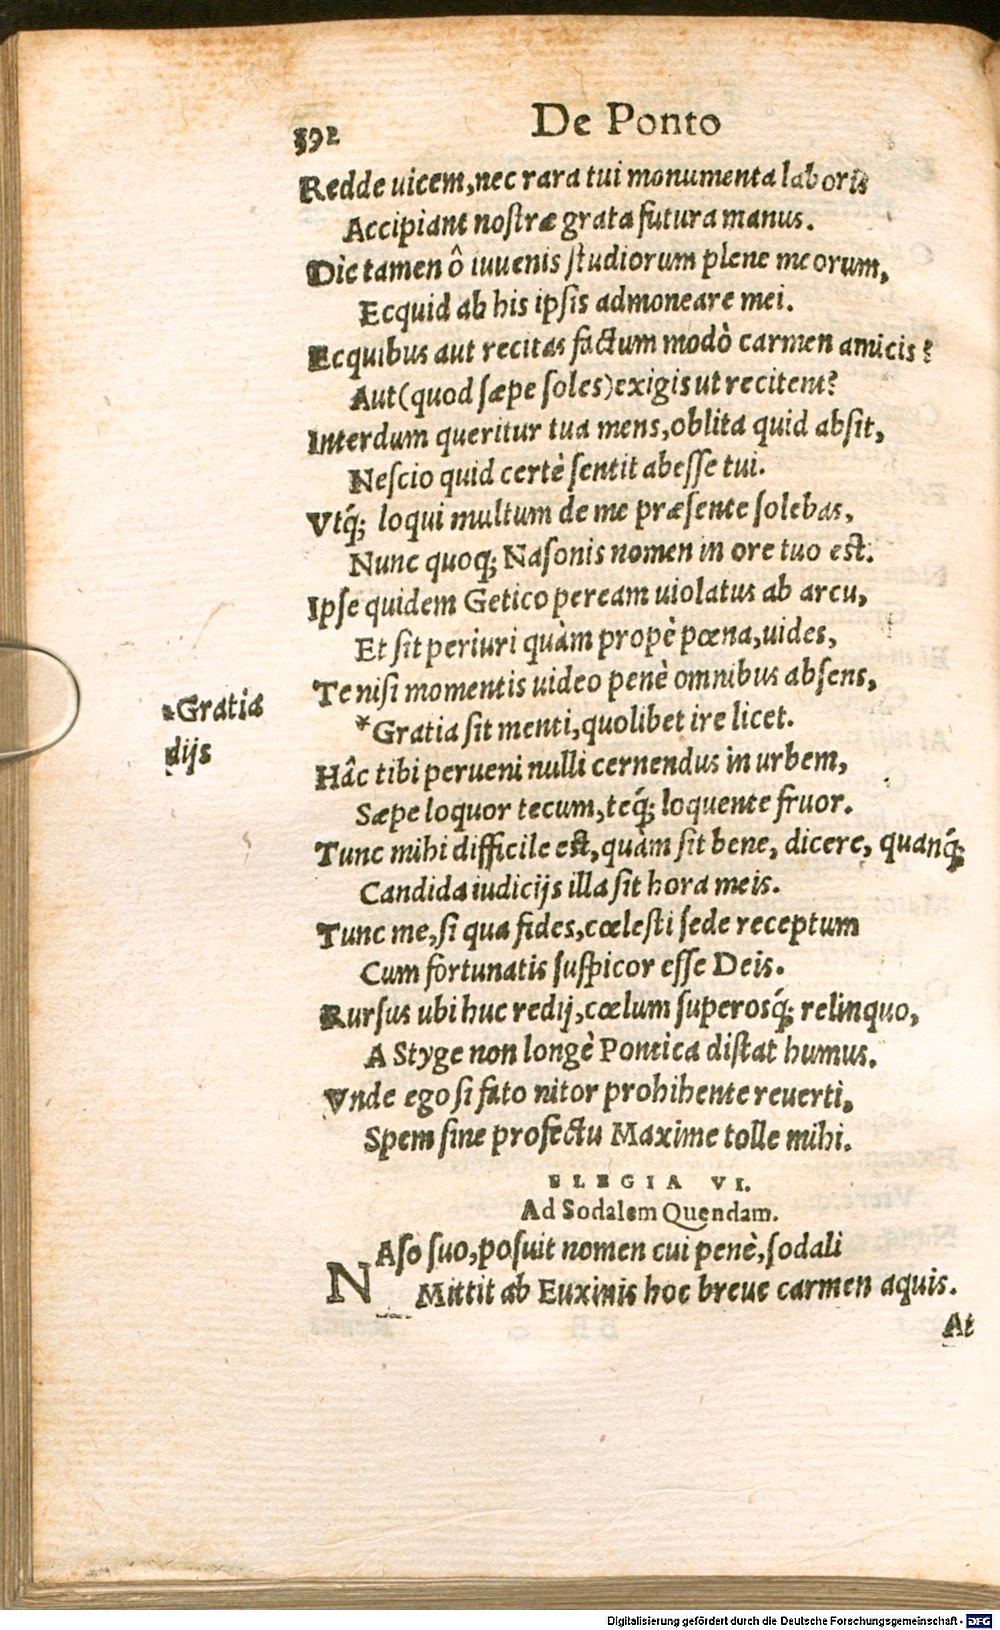 392 De Ponto
Redde uicem, nec rara tui monumenta laboris
Accipiant nostræ grata futura manus.
Dic tamen ô iuuenis studiorum plene meorum,
Ecquid ab his ipsis admoneare mei.
Ecquibus aut recitas factum modò carmen amicis?
Aut (quod sæpe soles) exigis ut recitent?
Interdum queritur tua mens, oblita quid absit,
Nescio quid certè sentit abesse tui.
Vtq́; loqui multum de me præsente solebas,
Nunc quoq; Nasonis nomen in ore tuo est.
Ipse quidem Getico peream uiolatus ab arcu,
Et sit periuri quàm propè pœna, uides,
Te nisi momentis uideo penè omnibus absens,
*Gratia sit menti, quolibet ire licet.
*Gratia
dijs
Hâc tibi perueni nulli cernendus in urbem,
Sæpe loquor tecum, teq́; loquente fruor.
Tunc mihi difficile est, quàm sit bene, dicere, quanq́;
Candida iudicijs illa sit hora meis.
Tunc me, si qua fides, cœlesti sede receptum
Cum fortunatis suspicor esse Deis.
Rursus ubi huc redij, cœlum superosq́; relinquo,
A Styge non longè Pontica distat humus.
Vnde ego si fato nitor prohibente reuerti,
Spem sine profectu Maxime tolle mihi.
ELEGIA VI.
Ad Sodalem Quendam.
NAso suo, posuit nomen cui penè, sodali
Mittit ab Euxinis hoc breue carmen aquis.
At
Digitalisierung gefördert durch die Deutsche Forschungsgemeinschaft - DFG